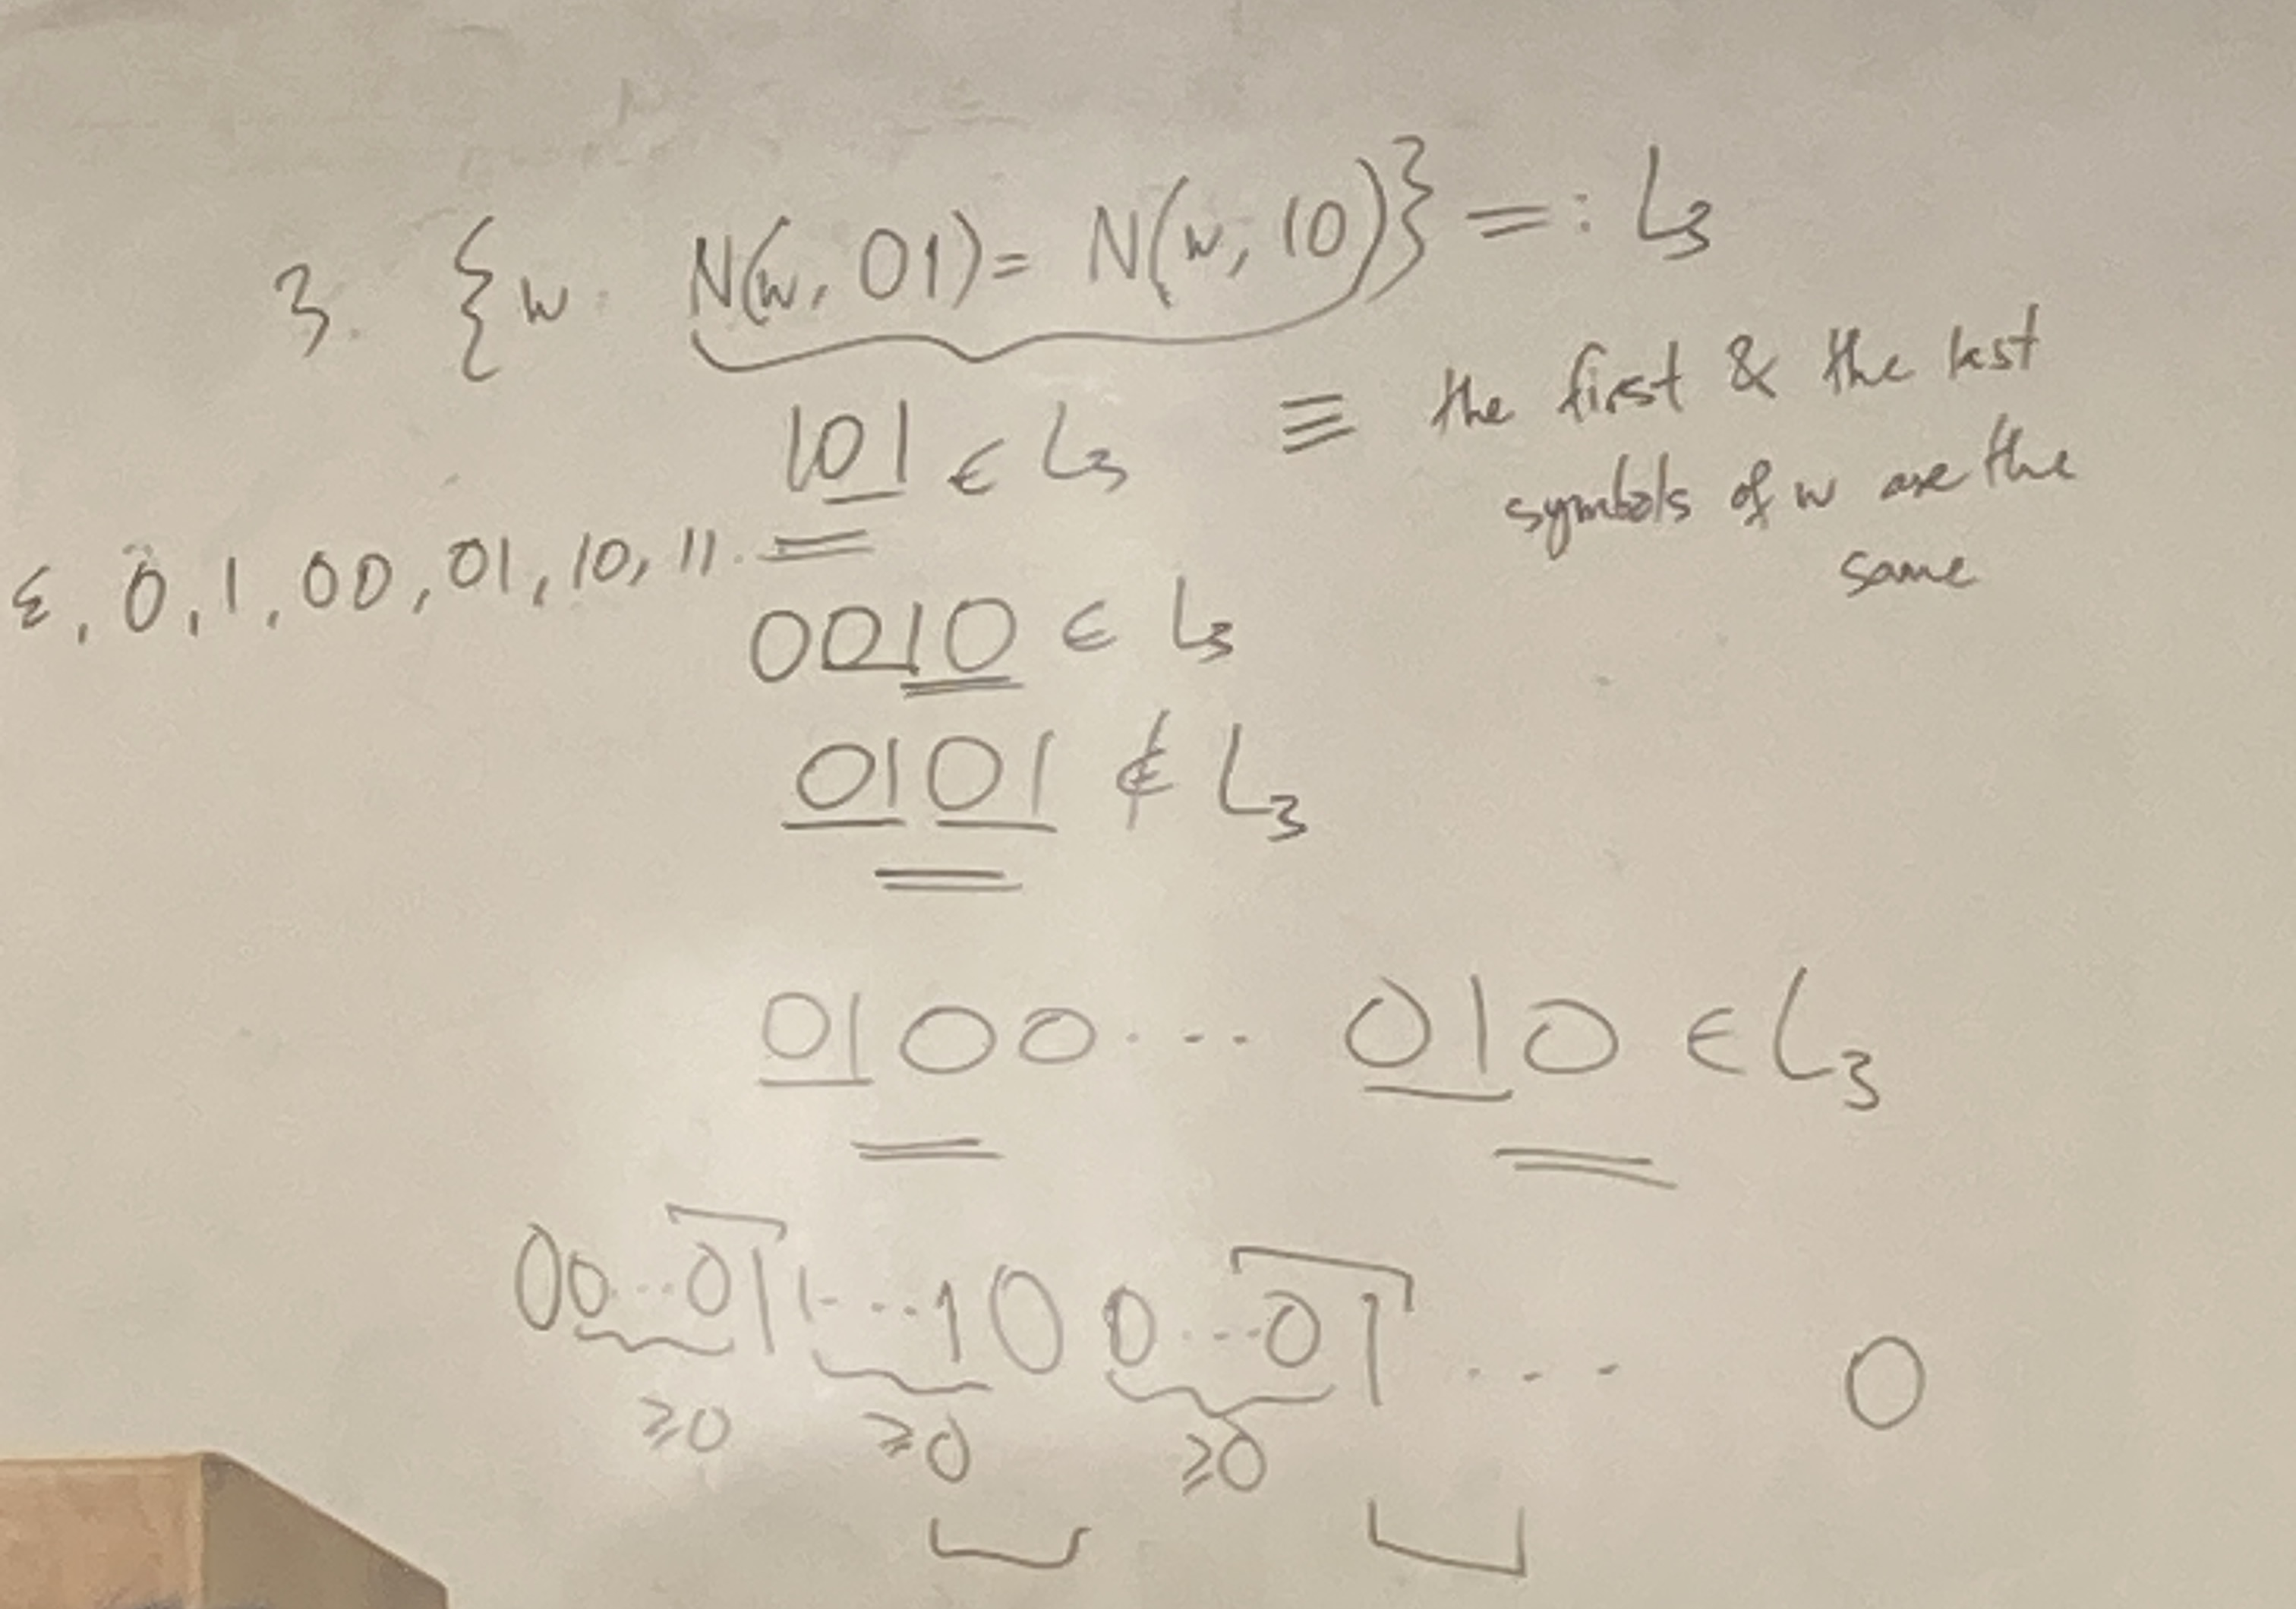 3. {w: N(w, 01) = N(w, 10)} =: L3
101 ∈ L3 ≡ the first & the last
symbols of w are the
same
ε, 0, 1, 00, 01, 10, 11.
0010 ∈ L3
0101 ∉ L3
0100 ... 010 ∈ L3
00...011...100...01 ... 0
≥0 ≥0 ≥0